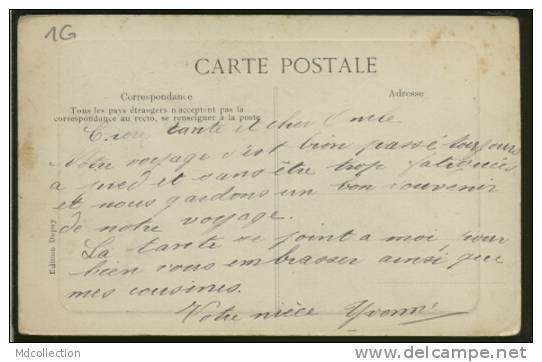 1G
CARTE POSTALE
Correspondance
Adresse
Tous les pays étrangers n'acceptent pas la
correspondance au recto, se renseigner à la poste
Chere tante et cher Oncle
Notre voyage s'est bien passé toujours
a pied et sans être trop fatigués
et nous gardons un bon souvenir
de notre voyage.
La tante se joint a moi pour
bien vous embrasser ainsi que
mes cousines.
Votre nièce Yvonne
Edition Dupuy
Mdcollection
www.delcampe.net